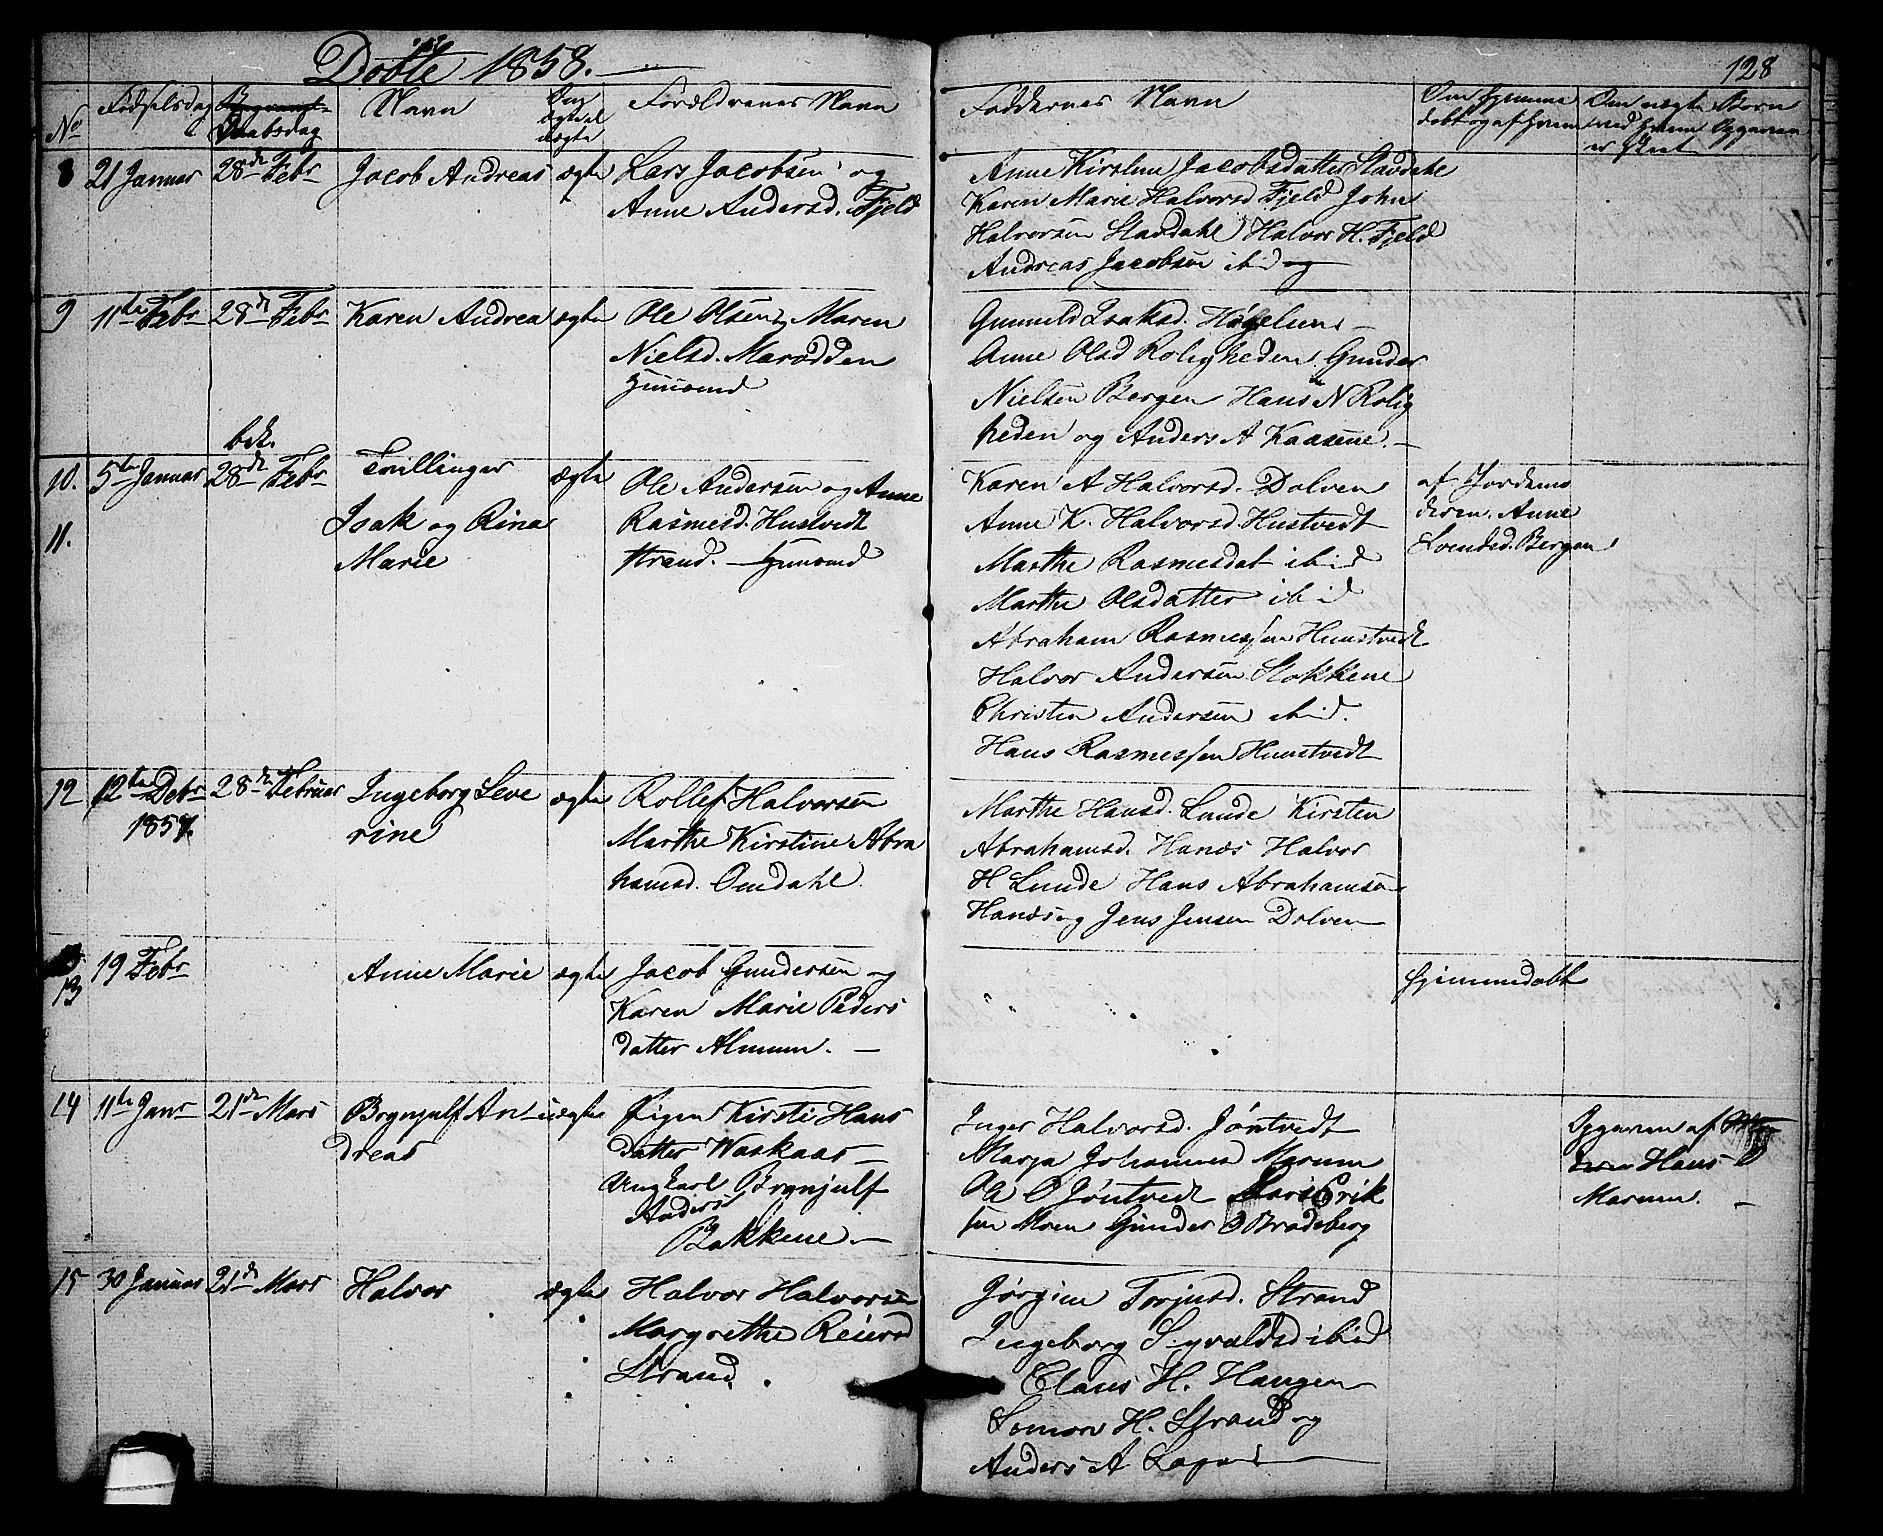 Døbte 1858.
128
No
Fødselsdag
Daabsdag
Navn
Om ægte el uægte
Forældrenes Navn
Faddernes Navn
Om hjemme
døbt og af hvem
Om uægte Børn
ved hvem Opgaven
er skeet
8 21 Januar 28de Febr Jacob Andreas ægte Lars Jacobsen og
Anne Andersd. Fjeld
Anne Kirstine Jacobsdatter Stavdahl
Karen Marie Halvorsd Fjeld John
Halvorsen Stavdahl Halvor H. Fjeld
Andreas Jacobsen ibid og
9 11te Febr 28de Febr Karen Andrea ægte Ole Olsen, Maren
Nielsd. Marødden
Gunnild Isaksd.
Anne Olsd Roligheden Gunder
Nielsen Bergen Hans N Rolig
heden og Anders A Kaasene. –
bek.
10. 5te Januar 28de Febr Tvillinger ægte
11.
Isak og Rina
Marie
Ole Andersen og Anne
Rasmusd. Hustvedt
strand.
Karen A Halvorsd. Dolven
Anne K. Halvorsd. Hustvedt
Marthe Rasmusdat ibid
Marthe Olsdatter ibid
Abraham Rasmussen Hunstvedt
Halvor Andersen Stokkene
Christen Andersen ibid.
Hans Rasmussen Hunstvedt
af Jordemo
deren Anne
Svendsd. Bergen
12 12te Debr 28de Februar Ingeborg Seve ægte Rollef Halvorsen
1857.
rine
Marthe Kirstine Abra
hamsd. Omdahl.
Marthe Hansd. Lunde Kirsten
Abrahamsd. Hanæs Halvor
H Lunde Hans Abrahamsen
Hanæs og Jens Jensen Dolven
13
19 Febr Anne Marie ægte Jacob Gundersen og
Karen Marie Peders
datter –
hjemmedøbt
14 11te Janr 21de Mars Brynjulf An uægte Pigen Kirsti Hans
dreas
datter Waskaas –
Ungkarl Brynjulf
Anders
Bakkene –
Inger Halvorsd. Jøntvedt
Marja Johannesd Marum
Ole O Jøntvedt Lars Erik
sen Moen Gunder O Bradsberg
Opgaven af
Hans
Marum. –
15 30 Januar 21de Mars Halvor ægte Halvor Halvorsen
Margrethe Reiersd
Strand.
Jørgine Torjusd. Strand
Ingeborg Sigvaldsd ibid
Claus H. Haugen
Somon H. Strand og
Anders A